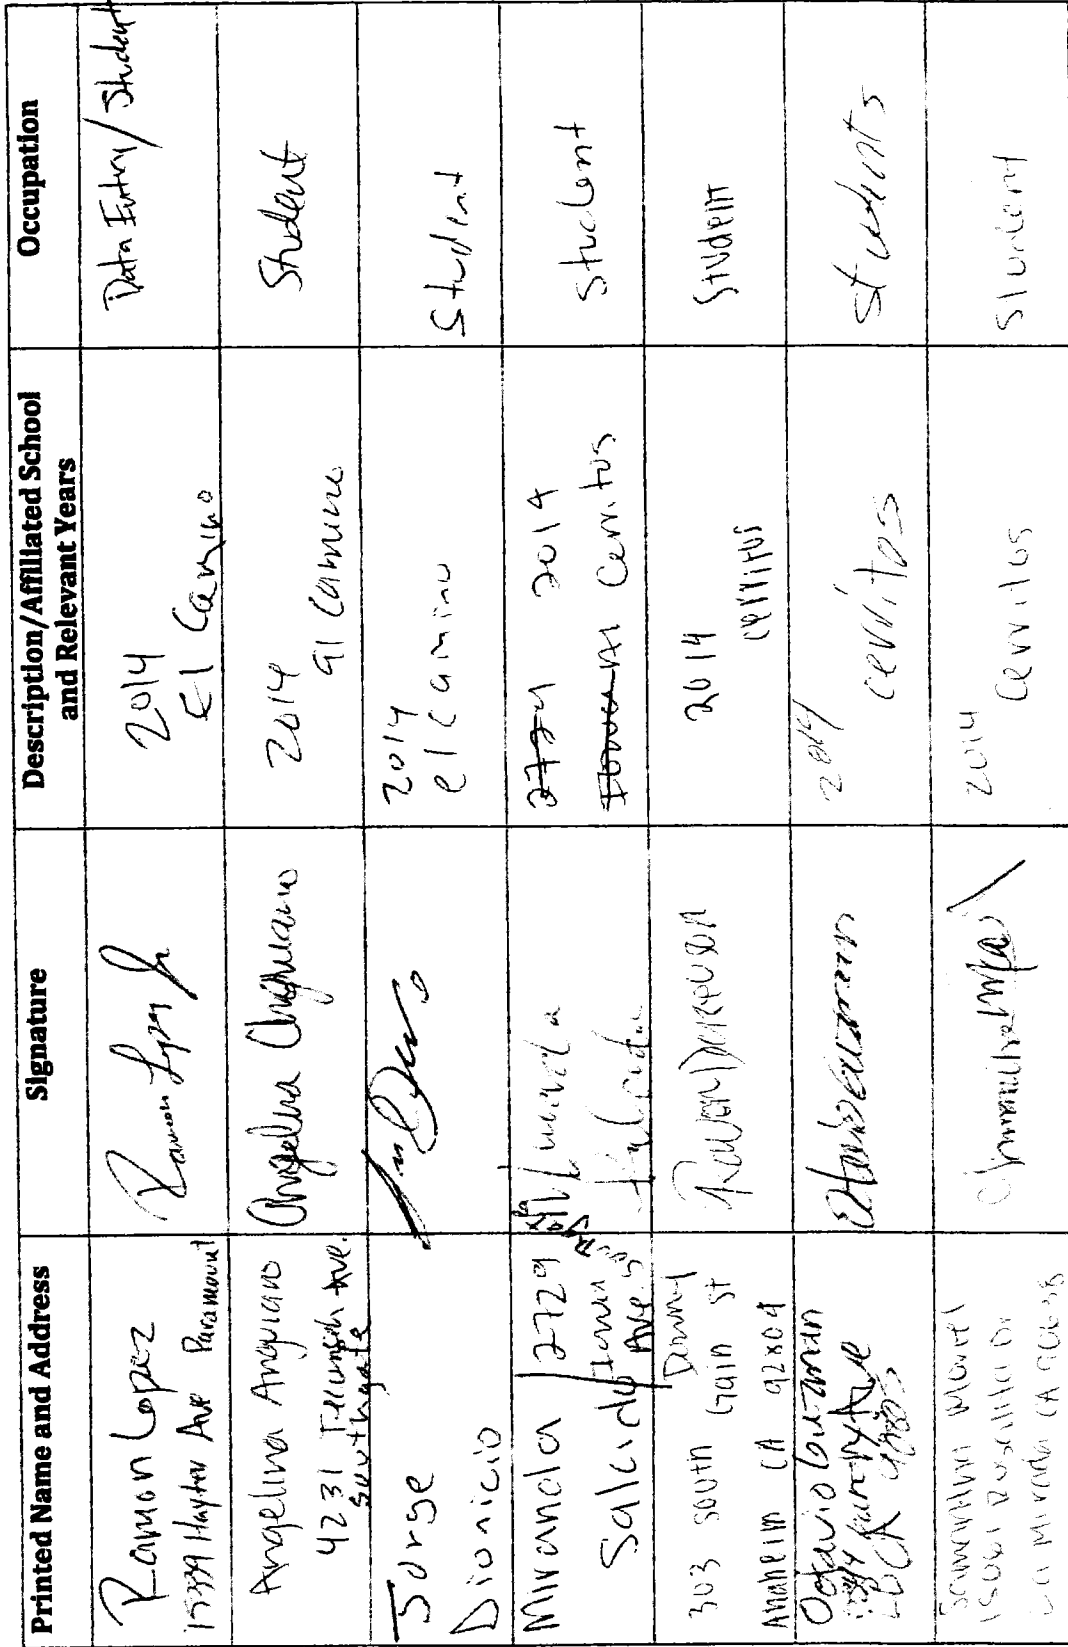 Printed Name and Address
Signature
Description/Affiliated School
and Relevant Years
Occupation
Ramon Lopez
15339 Hayter Ave Paramount
Ramon Lopez Jr
2014
El Camino
Data Entry/Student
Angelina Anguiano
4231 Tecumseh Ave.
Southgate
Angelina Anguiano
2014
El Camino
Student
Jorge
Dionicio
2014
el Camino
Student
Miranda 2729
Salcido
Ave
Miranda
Salcido
2014
Cerritos
Student
303 South Gain St
Anaheim CA 92804
2014
cerritos
Student
Octavio Guzman
Ave
2014
cerritos
students
Samantha
La Mirada CA
2014
Cerritos
Student